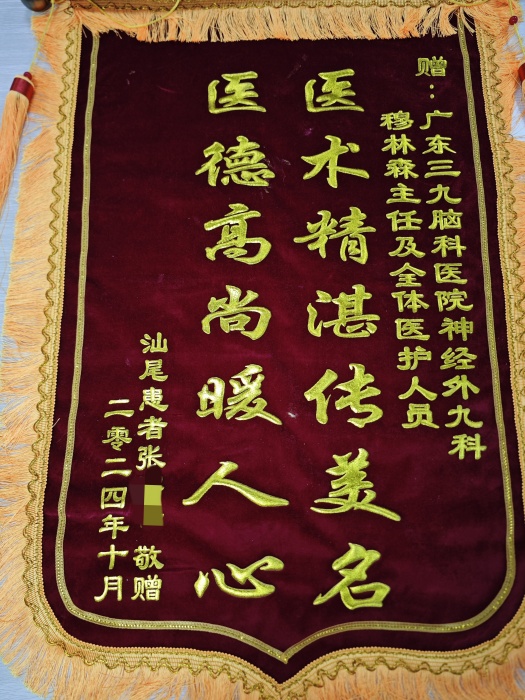 赠：广东三九脑科医院神经外九科
穆林森主任及全体医护人员
医术精湛传美名
医德高尚暖人心
汕尾患者张 敬赠
二零二四年十月